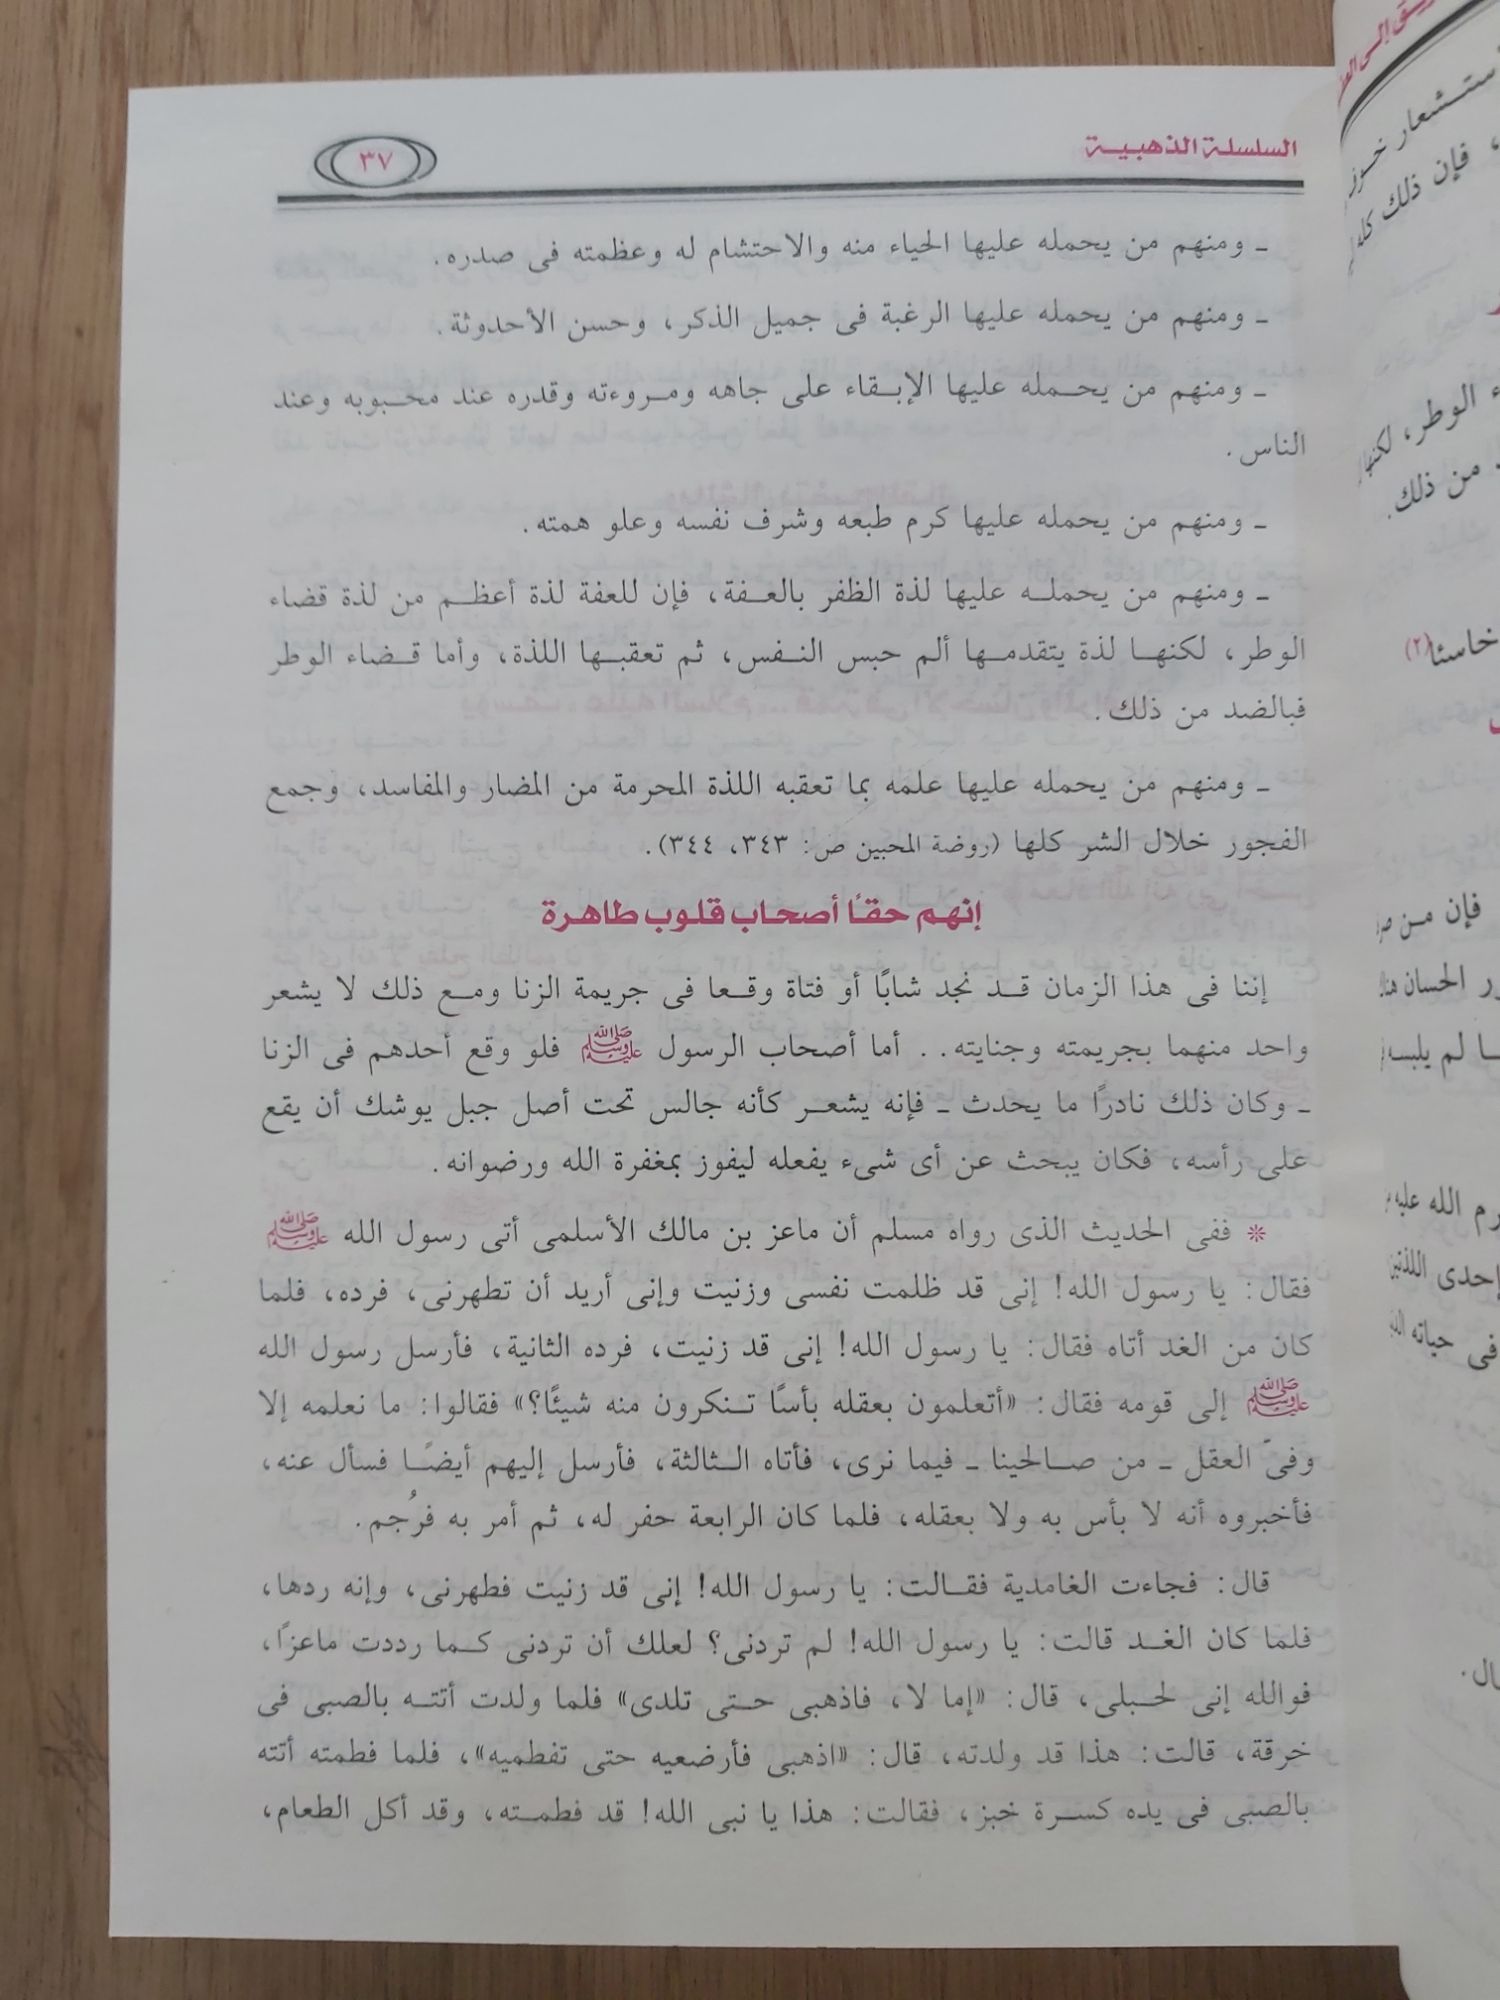 السلسلة الذهبية
٣٧
ـ ومنهم من يحمله عليها الحياء منه والاحتشام له وعظمته فى صدره.
ـ ومنهم من يحمله عليها الرغبة فى جميل الذكر، وحسن الأحدوثة.
ـ ومنهم من يحمله عليها الإبقاء على جاهه ومروءته وقدره عند محبوبه وعند
الناس.
ـ ومنهم من يحمله عليها كرم طبعه وشرف نفسه وعلو همته.
ـ ومنهم من يحمله عليها لذة الظفر بالعفة، فإن للعفة لذة أعظم من لذة قضاء
الوطر، لكنها لذة يتقدمها ألم حبس النفس، ثم تعقبها اللذة، وأما قضاء الوطر
فبالضد من ذلك.
ـ ومنهم من يحمله عليها علمه بما تعقبه اللذة المحرمة من المضار والمفاسد، وجمع
الفجور خلال الشر كلها (روضة المحبين ص: ٣٤٣، ٣٤٤).
إنهم حقًا أصحاب قلوب طاهرة
إننا فى هذا الزمان قد نجد شابًا أو فتاة وقعا فى جريمة الزنا ومع ذلك لا يشعر
واحد منهما بجريمته وجنايته.. أما أصحاب الرسول ﷺ فلو وقع أحدهم فى الزنا
ـ وكان ذلك نادرًا ما يحدث ـ فإنه يشعر كأنه جالس تحت أصل جبل يوشك أن يقع
على رأسه، فكان يبحث عن أى شىء يفعله ليفوز بمغفرة الله ورضوانه.
* ففى الحديث الذى رواه مسلم أن ماعز بن مالك الأسلمى أتى رسول الله ﷺ
فقال: يا رسول الله! إنى قد ظلمت نفسى وزنيت وإنى أريد أن تطهرنى، فرده، فلما
كان من الغد أتاه فقال: يا رسول الله! إنى قد زنيت، فرده الثانية، فأرسل رسول الله
ﷺ إلى قومه فقال: «أتعلمون بعقله بأسًا تنكرون منه شيئًا؟» فقالوا: ما نعلمه إلا
وفىّ العقل ـ من صالحينا ـ فيما نرى، فأتاه الثالثة، فأرسل إليهم أيضًا فسأل عنه،
فأخبروه أنه لا بأس به ولا بعقله، فلما كان الرابعة حفر له، ثم أمر به فرُجم.
قال: فجاءت الغامدية فقالت: يا رسول الله! إنى قد زنيت فطهرنى، وإنه ردها،
فلما كان الغد قالت: يا رسول الله! لم تردنى؟ لعلك أن تردنى كما رددت ماعزًا،
فوالله إنى لحبلى، قال: «إما لا، فاذهبى حتى تلدى» فلما ولدت أتته بالصبى فى
خرقة، قالت: هذا قد ولدته، قال: «اذهبى فأرضعيه حتى تفطميه»، فلما فطمته أتته
بالصبى فى يده كسرة خبز، فقالت: هذا يا نبى الله! قد فطمته، وقد أكل الطعام،
فإن ذلك
الوطر، لكنها
من ذلك.
خاسئا(٢)
فإن من
الحسان
لم يلبس
الله عليه
إحدى اللذتين
فى حياته